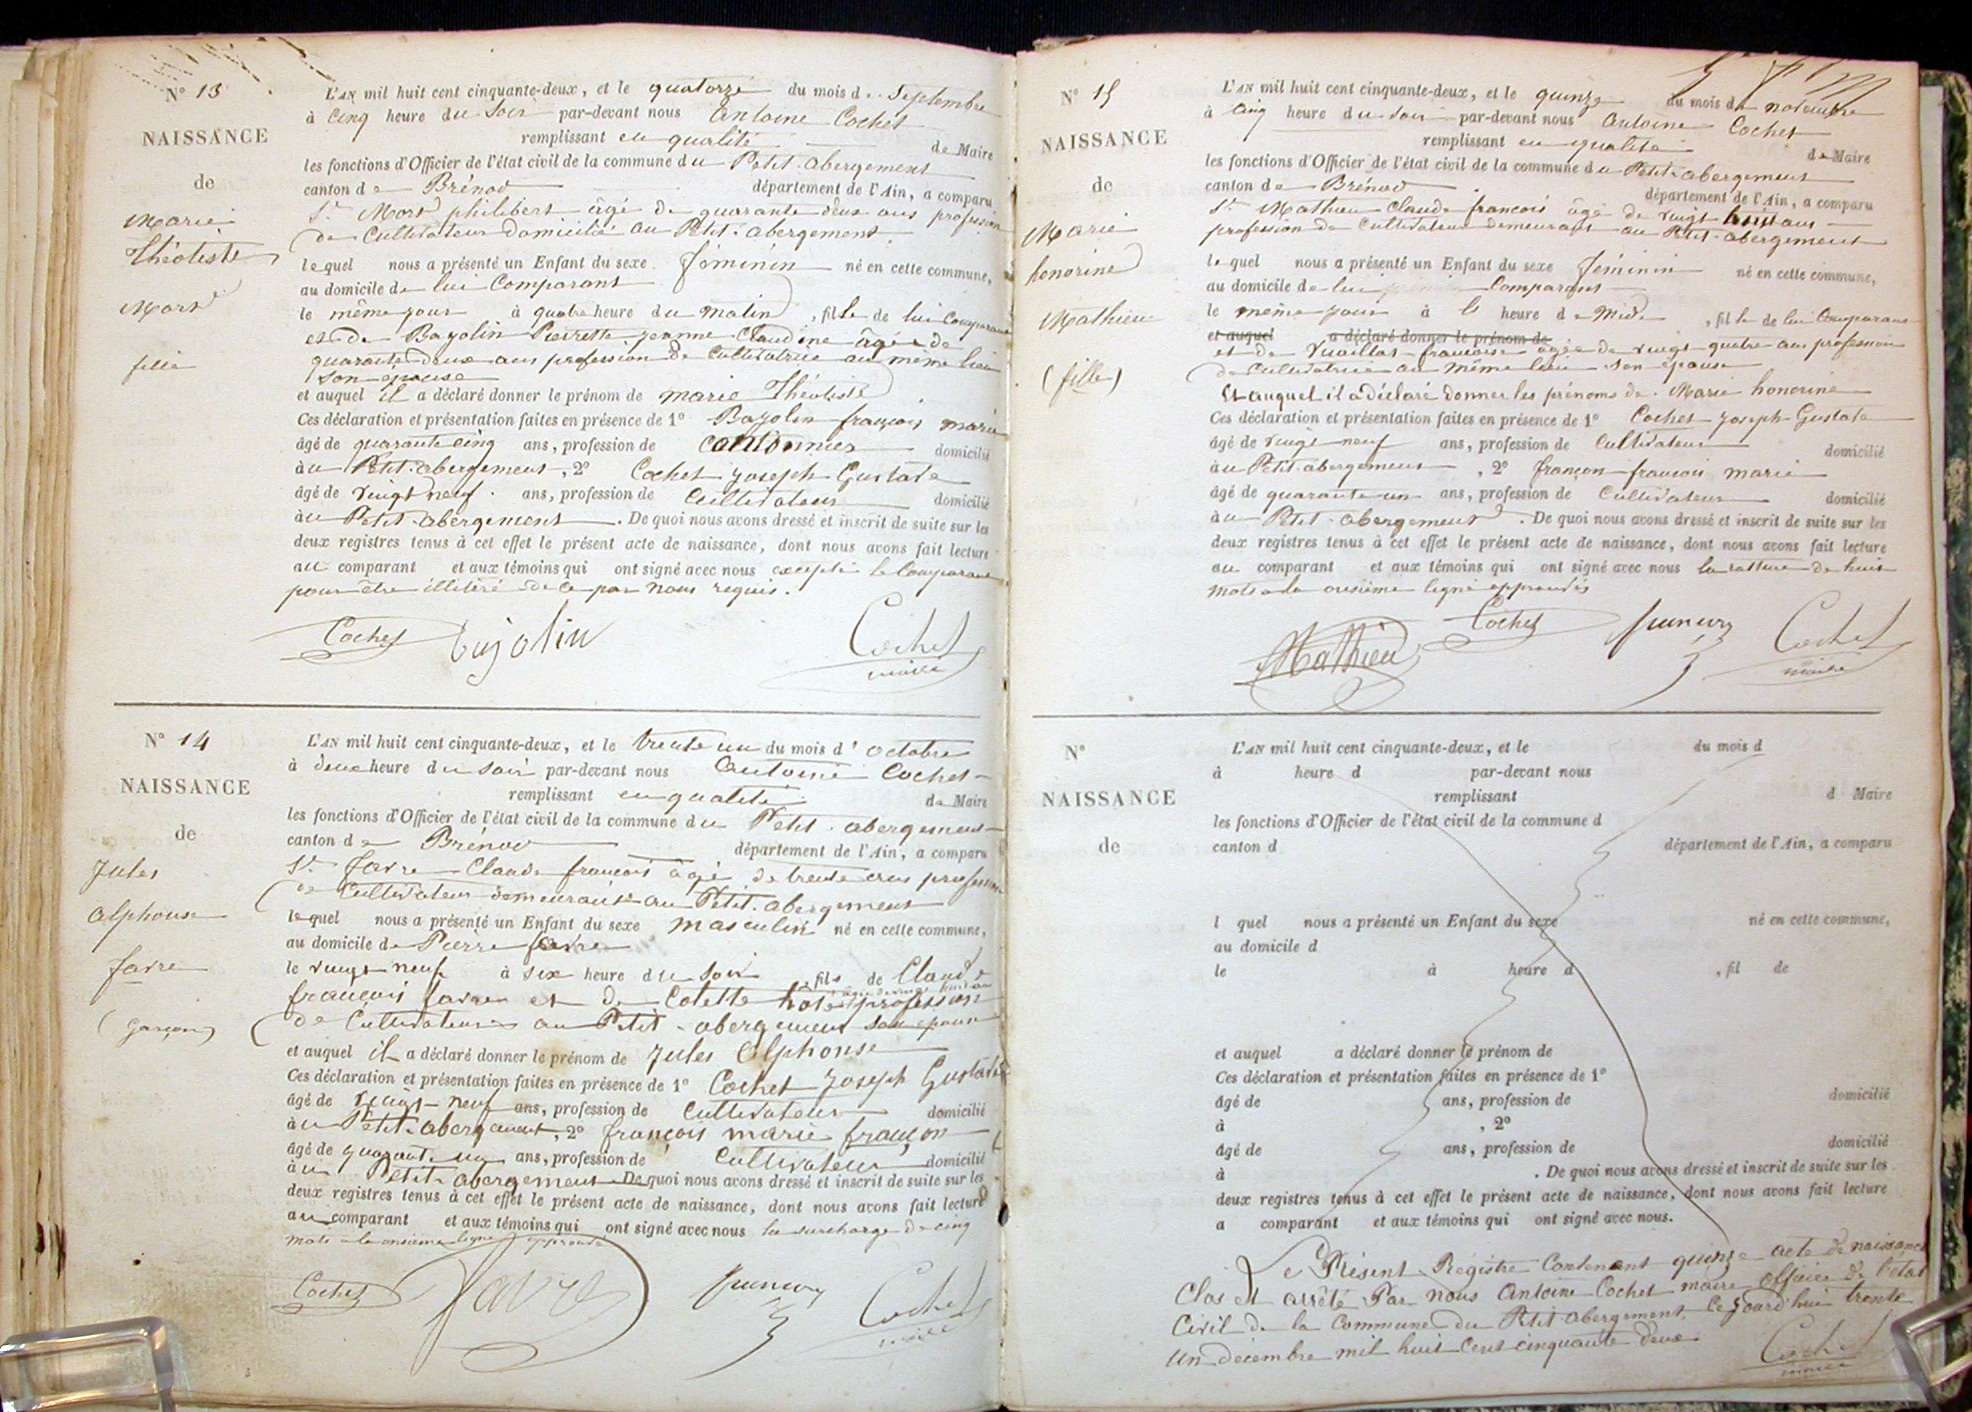 N° 13
NAISSANCE
de
Marie
Théotiste
Mort
fille
L'AN mil huit cent cinquante-deux, et le quatorze du mois de Septembre
à Cinq heure du Soir par-devant nous Antoine Cochet
remplissant en qualité de Maire
les fonctions d'Officier de l'état civil de la commune du Petit-abergement
canton de Brénod département de l'Ain, a comparu
Sr Mort philibert âgé de quarante deux ans profession
de Cultivateur domicilié au Petit-abergement
lequel nous a présenté un Enfant du sexe féminin né en cette commune,
au domicile de lui Comparant
le même jour à quatre heure du matin, fille de lui Comparant
et de Bajolin Pierrette jeanne Claudine âgée de
quarante deux ans profession de Cultivatrice au même lieu
son épouse
et auquel il a déclaré donner le prénom de marie Théotiste
Ces déclaration et présentation faites en présence de 1° Bajolin françois marie
âgé de quarante cinq ans, profession de Cantonnier domicilié
àu Petit-abergement, 2° Cochet joseph Gustave
âgé de vingt neuf ans, profession de Cultivateur domicilié
àu Petit-abergement. De quoi nous avons dressé et inscrit de suite sur les
deux registres tenus à cet effet le présent acte de naissance, dont nous avons fait lecture
au comparant et aux témoins qui ont signé avec nous excepté le Comparant
pour être illitéré de ce par nous requis.
Cochet Bajolin Cochet
maire
N° 14
NAISSANCE
de
Jules
alphonse
favre
(garçon)
L'AN mil huit cent cinquante-deux, et le trente un du mois d'octobre
à deux heure du soir par-devant nous Antoine Cochet
remplissant en qualité de Maire
les fonctions d'Officier de l'état civil de la commune du Petit-abergement
canton de Brénod département de l'Ain, a comparu
Sr favre Claude françois âgé de trente ans profession
de Cultivateur demeurant au Petit-abergement
lequel nous a présenté un Enfant du sexe masculin né en cette commune,
au domicile de Pierre favre
le vingt neuf à six heure du soir, fils de Claude
françois favre et de Colette profession
de Cultivateur au Petit-abergement son épouse
et auquel il a déclaré donner le prénom de Jules alphonse
Ces déclaration et présentation faites en présence de 1° Cochet Joseph Gustave
âgé de vingt-neuf ans, profession de Cultivateur domicilié
àu Petit-abergement, 2° françois marie françon
âgé de quarante un ans, profession de Cultivateur domicilié
àu Petit-abergement De quoi nous avons dressé et inscrit de suite sur les
deux registres tenus à cet effet le présent acte de naissance, dont nous avons fait lecture
au comparant et aux témoins qui ont signé avec nous la surcharge de cinq
mots à la onsième ligne approuvé
Cochet favre françon Cochet
maire
N° 15
NAISSANCE
de
Marie
honorine
Mathieu
(fille)
L'AN mil huit cent cinquante-deux, et le quinze du mois de novembre
à Cinq heure du soir par-devant nous Antoine Cochet
remplissant en qualité de Maire
les fonctions d'Officier de l'état civil de la commune du Petit-abergement
canton de Brénod département de l'Ain, a comparu
Sr Mathieu Claude françois âgé de vingt huit ans
profession de Cultivateur demeurant au Petit-abergement
lequel nous a présenté un Enfant du sexe féminin né en cette commune,
au domicile de lui Comparant
le même jour à heure de Midi, fille de lui Comparant
et auquel a déclaré donner le prénom de
et de françoise âgée de vingt-quatre ans profession
de Cultivatrice au même lieu son épouse
Et auquel il a déclaré donner les prénoms de Marie honorine
Ces déclaration et présentation faites en présence de 1° Cochet joseph-Gustave
âgé de vingt neuf ans, profession de Cultivateur domicilié
àu Petit-abergement, 2° françon françois marie
âgé de quarante un ans, profession de Cultivateur domicilié
àu Petit-abergement. De quoi nous avons dressé et inscrit de suite sur les
deux registres tenus à cet effet le présent acte de naissance, dont nous avons fait lecture
au comparant et aux témoins qui ont signé avec nous la rature de huit
mots à la onsième ligne approuvés
Mathieu Cochet françon Cochet
maire
N°
NAISSANCE
de
L'AN mil huit cent cinquante-deux, et le du mois d
à heure d par-devant nous
remplissant d Maire
les fonctions d'Officier de l'état civil de la commune d
canton d département de l'Ain, a comparu
l quel nous a présenté un Enfant du sexe né en cette commune,
au domicile d
le à heure d , fil de
et auquel a déclaré donner le prénom de
Ces déclaration et présentation faites en présence de 1°
âgé de ans, profession de domicilié
à , 2°
âgé de ans, profession de domicilié
à . De quoi nous avons dressé et inscrit de suite sur les
deux registres tenus à cet effet le présent acte de naissance, dont nous avons fait lecture
a comparant et aux témoins qui ont signé avec nous.
Le Présent Régistre Contenant quinze acte de naissance
Clos et arrêté Par nous Antoine Cochet maire officier de l'état
Civil de la Commune du Petit abergement, Ce jourd'hui trente
un decembre mil huit Cent cinquante deux
Cochet
maire